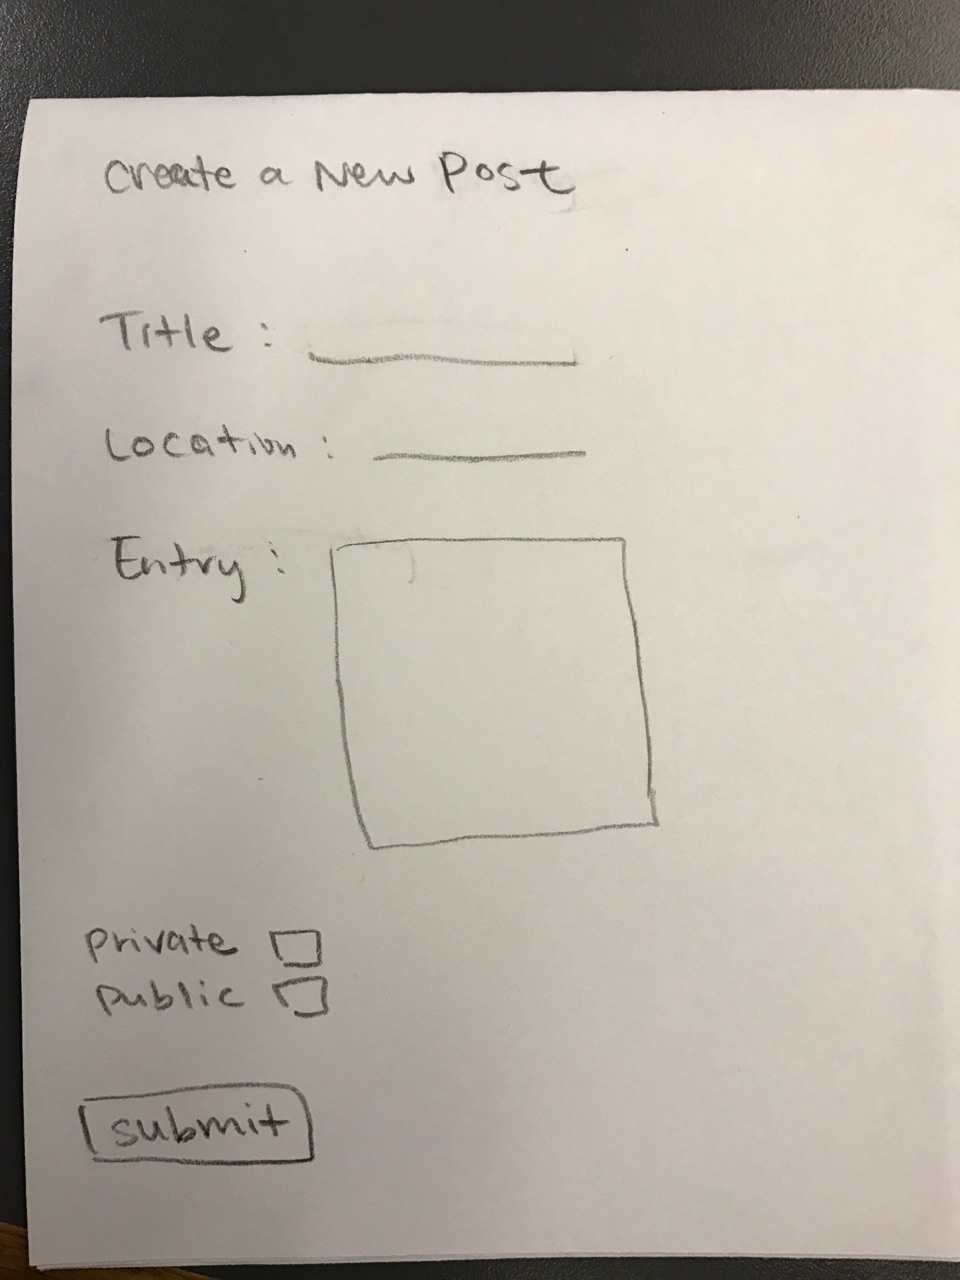 Create a New Post
Title :
Location :
Entry :
private
public
submit